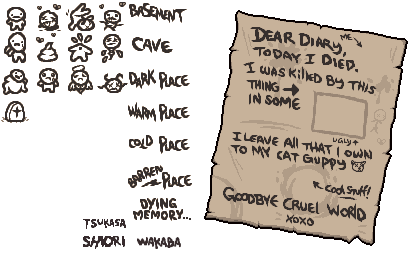 BASEMENT
CAVE
DARK PLACE
WARM PLACE
COLD PLACE
BARREN PLACE
DYING
MEMORY...
TSUKASA
SHIORI WAKABA
DEAR DIARY,
ME
TODAY I DIED.
I WAS KILLED BY THIS
THING
IN SOME
UGLY
I LEAVE ALL THAT I OWN
TO MY CAT GUPPY
COOL STUFF!
GOODBYE CRUEL WORLD
XOXO